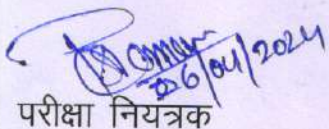 26/04/2024
परीक्षा नियत्रक